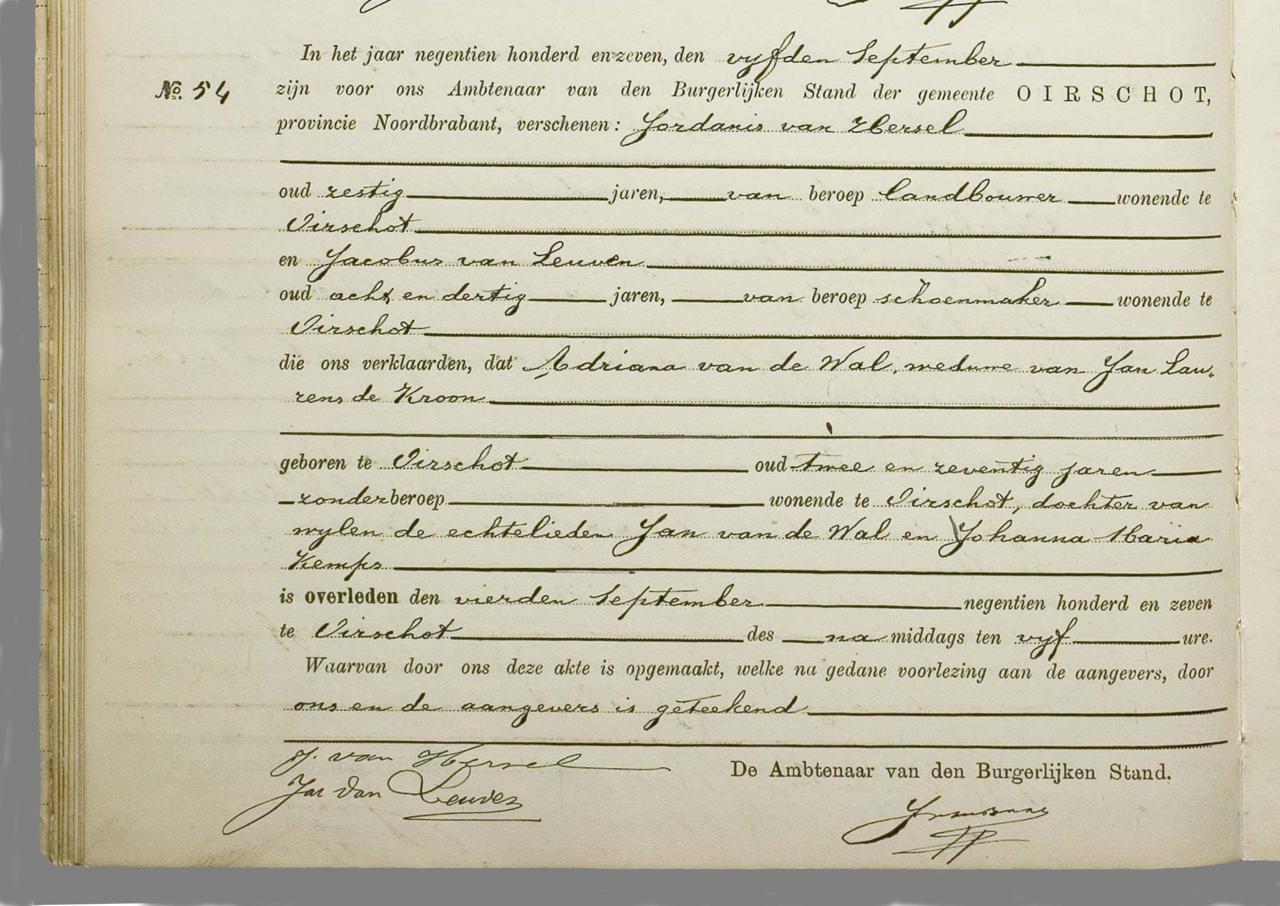 In het jaar negentien honderd en zeven, den vyfden September
No. 54
zijn voor ons Ambtenaar van den Burgerlijken Stand der gemeente OIRSCHOT,
provincie Noordbrabant, verschenen: Jordanis van Hersel
oud zestig jaren, van beroep landbouwer wonende te
Oirschot
en Jacobus van Leuven
oud acht en dertig jaren, van beroep schoenmaker wonende te
Oirschot
die ons verklaarden, dat Adriana van de Wal, weduwe van Jan Lau-
rens de Kroon
geboren te Oirschot oud twee en zeventig jaren
zonder beroep wonende te Oirschot, dochter van
wylen de echtelieden Jan van de Wal en Johanna Maria
Kemps
is overleden den vierden September negentien honderd en zeven
te Oirschot des na middags ten vyf ure.
Waarvan door ons deze akte is opgemaakt, welke na gedane voorlezing aan de aangevers, door
ons en de aangevers is geteekend
J. van Hersel
Jac van Leuven
De Ambtenaar van den Burgerlijken Stand.